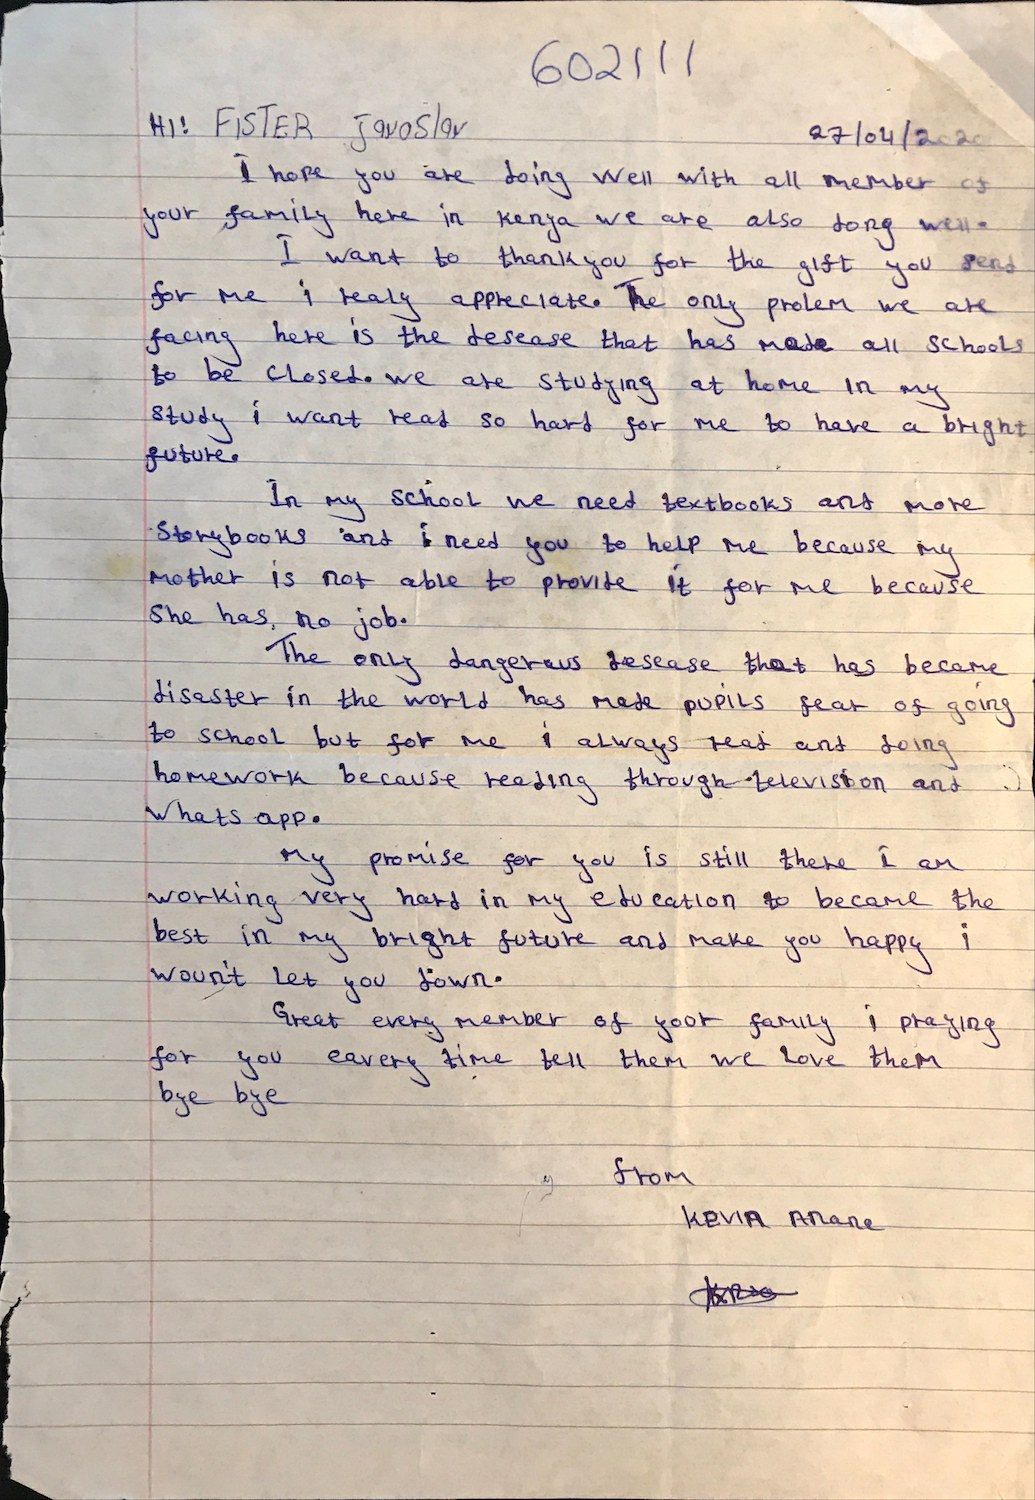 602111
HI! FISTER Jaroslav
27/04/2020
I hope you are doing well with all member of
your family here in Kenya we are also dong well.
I want to thankyou for the gift you send
for me i realy appreciate. The only prolem we are
facing here is the desease that has made all schools
to be closed. we are studying at home in my
study i want read so hard for me to have a bright
future.
In my school we need textbooks and more
storybooks and i need you to help me because my
mother is not able to provide it for me because
she has, no job.
The only dangerous desease that has became
disaster in the world has made pupils fear of going
to school but for me i always read and doing
homework because reading through television and
Whats app.
My promise for you is still there i am
working very hard in my education to became the
best in my bright future and make you happy i
woun't let you down.
Great every member of yoor family i praying
for you eavery time tell them we love them
bye bye
from
KEVIN Anane